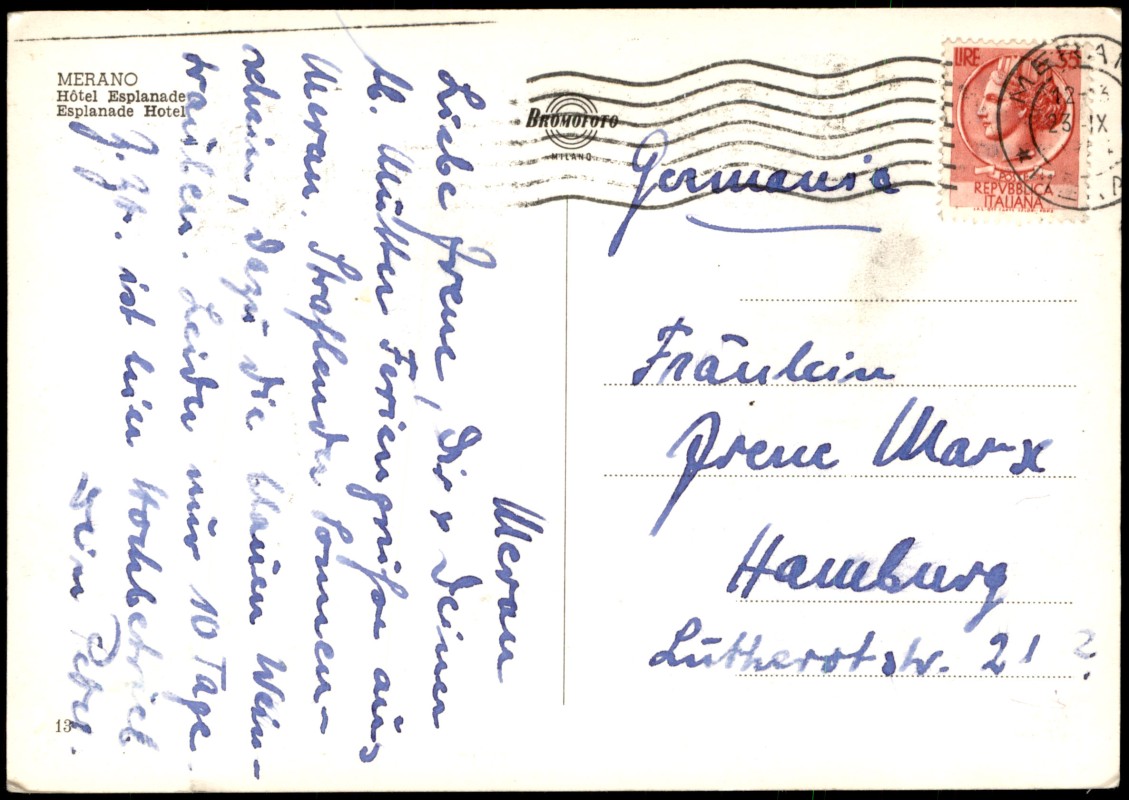 MERANO
Hôtel Esplanade
Esplanade Hotel
Meran
Liebe Irene, Dir & Deiner
lb. Mutter Feriengrüße aus
Meran. Strahlender Sonnen-
schein, dazu die blauen Wein-
trauben. Leider nur 10 Tage.
Z. Zt. ist hier Hochbetrieb
Dein Peter.
13
BROMOFOTO
MILANO
LIRE 35
REPVBBLICA
ITALIANA
12-
23-IX
Germania
Fräulein
Irene Marx
Hamburg
Lutherotstr. 21 ?